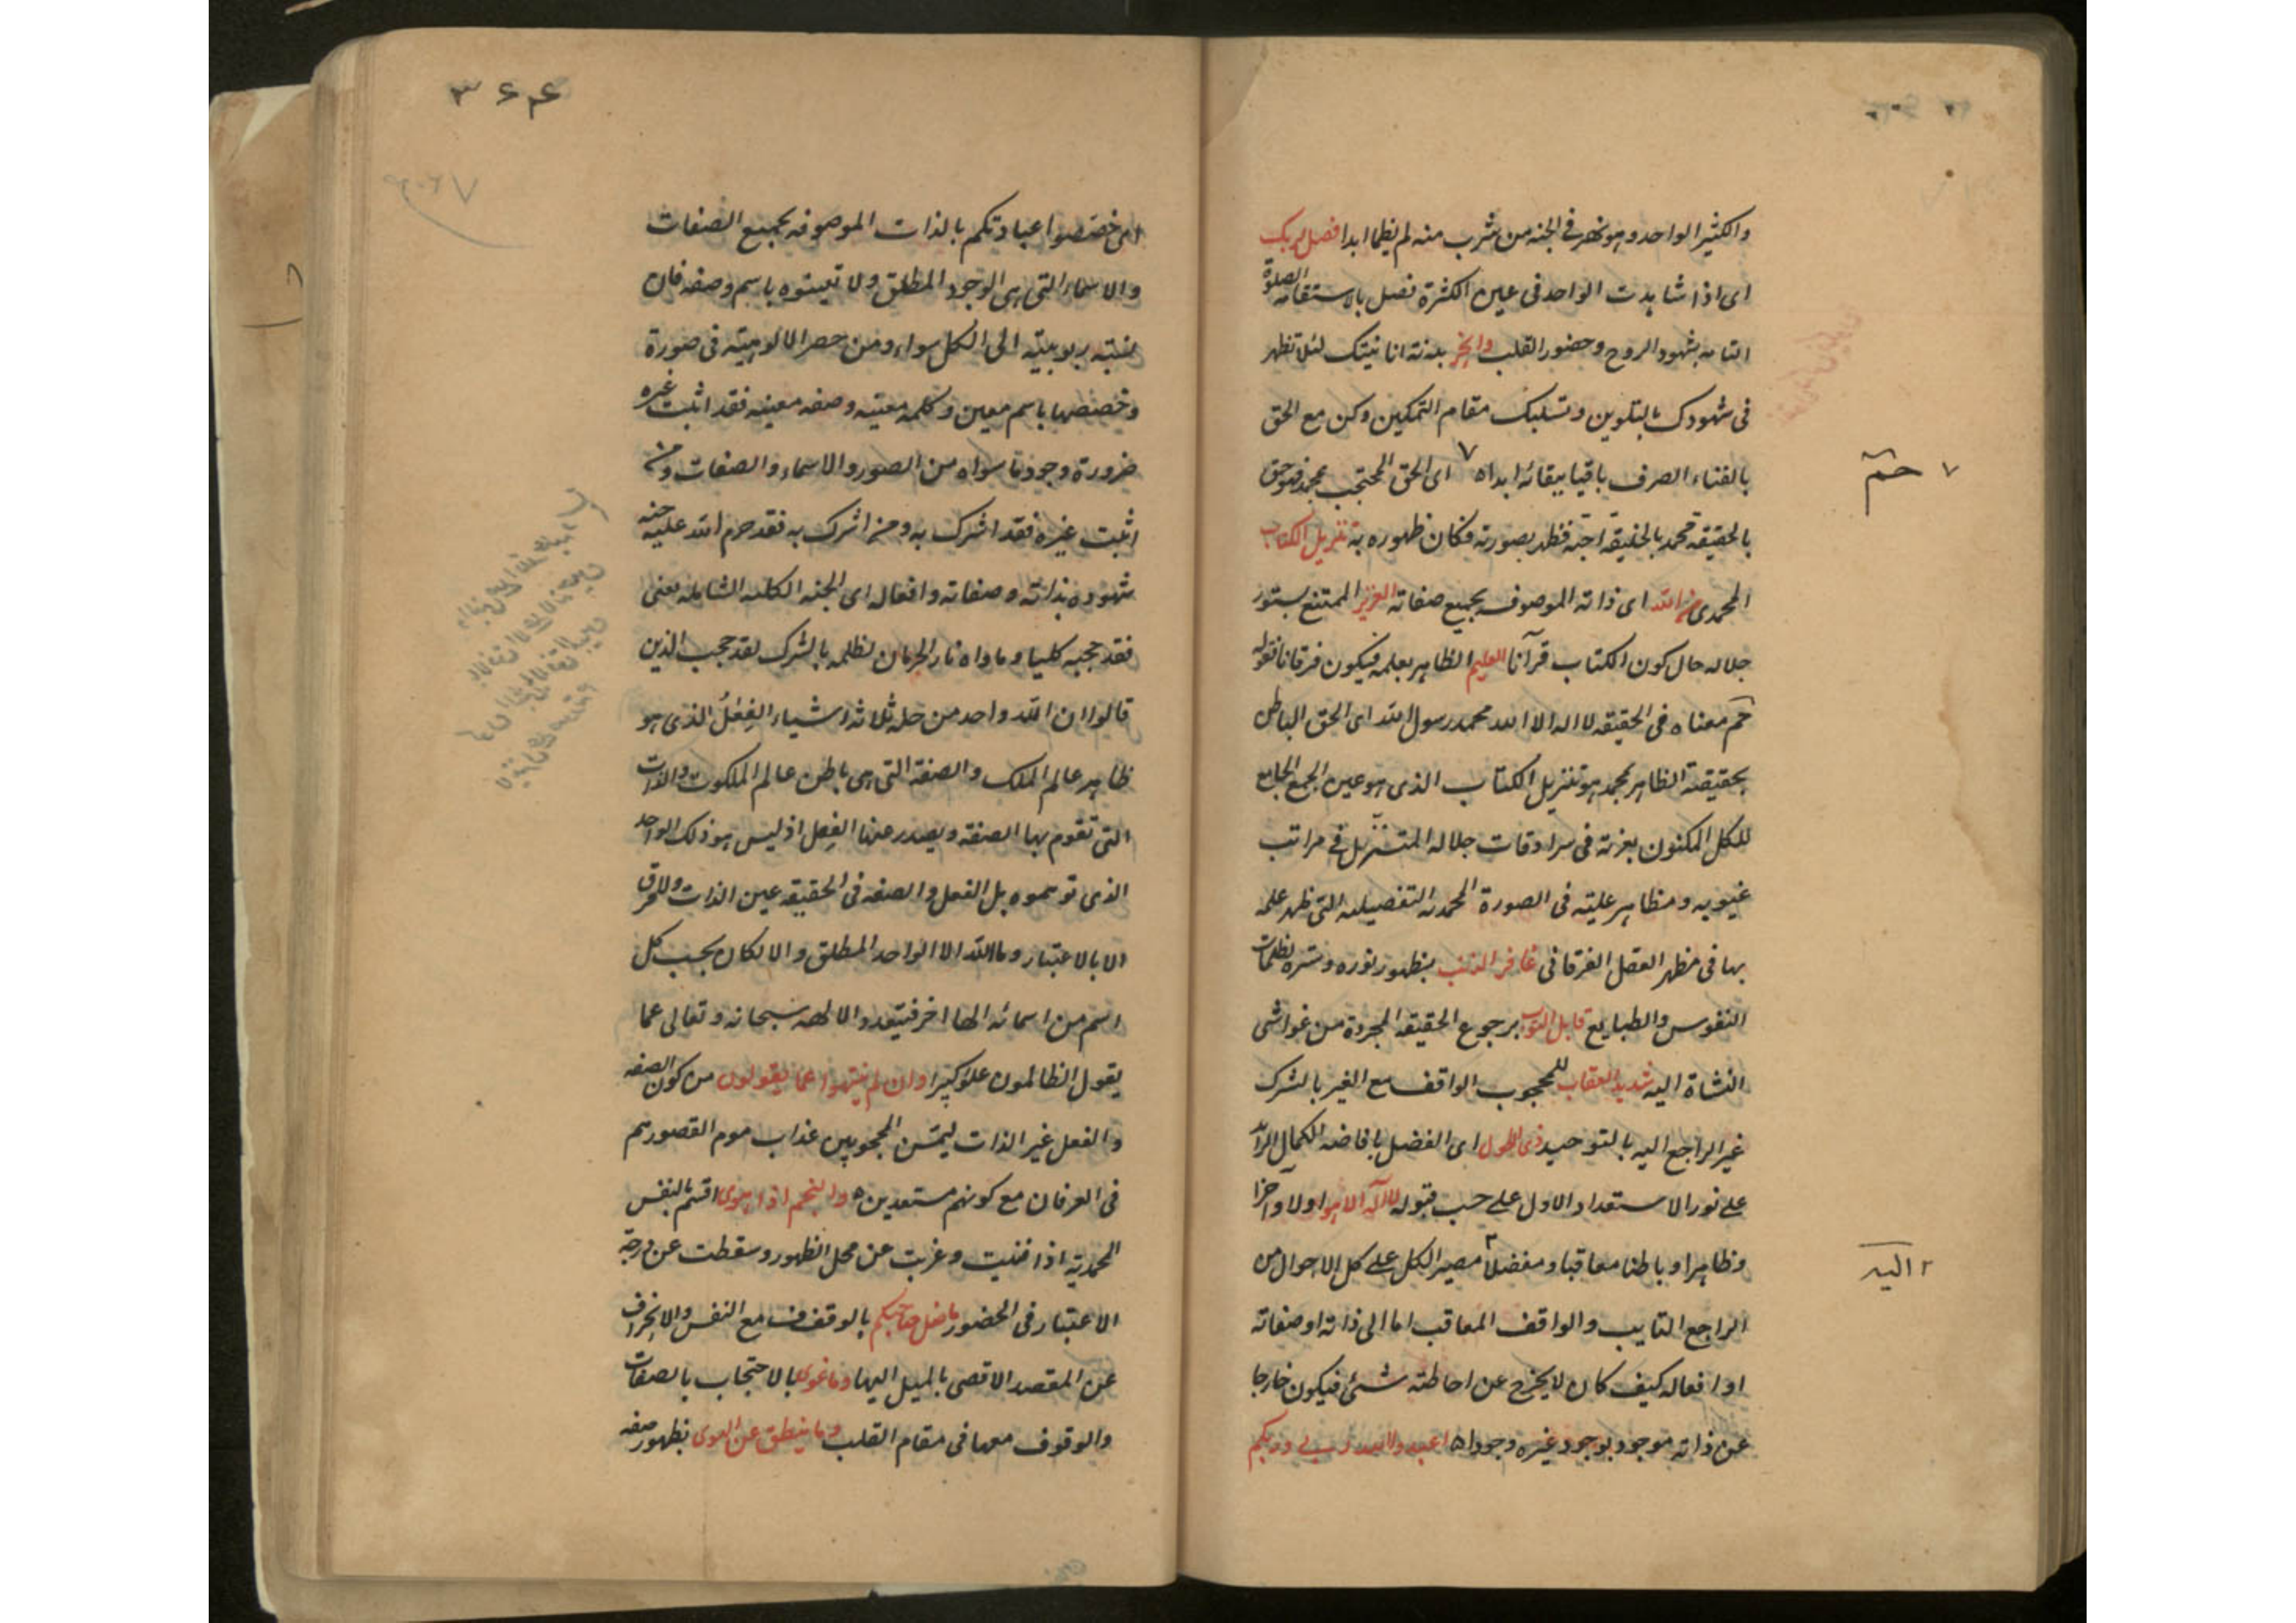 والكثير الواحد وهو نهر فى الجنه من شرب منه لم يظما ابدا فصل لربك
اى اذا شاهدت الواحد فى عين الكثرة فصل بالاستقامه الصلوة
التامه بشهود الروح وحضور القلب وانحر بدنة انانيتك لئلا تظهر
فى شهودك بالتلوين وتسلبك مقام التمكين وكن مع الحق
بالفناء الصرف باقيا ببقائه ابدا ٥ ٧ اى الحق المحتجب بمحمد فهو حق
٧ حم
بالحقيقة محمد بالخليقة احبه فظهر بصورته فكان ظهوره به تنزيل الكتاب
المحمدى من الله اى ذاته الموصوف بجميع صفاته العزيز الممتنع بستور
جلاله حال كون الكتاب قرآنا العليم الظاهر بعلمه فيكون فرقانا فقوله
حم معناه فى الحقيقه لا اله الا الله محمد رسول الله اى الحق الباطن
بحقيقته الظاهر بمحمد هو تنزيل الكتاب الذى هو عين الجمع الجامع
للكل المكنون بعزته فى سرادقات جلاله المتنزل فى مراتب
غيوبه ومظاهر علمه فى الصورة المحمديه التفصيليه التى ظهر علمه
بها فى مظهر العقل الفرقانى غافر الذنب بظهور نوره وستره لظلمات
النفوس والطبايع قابل التوب برجوع الحقيقه المجردة من غواشى
النشاة اليه شديد العقاب للمحجوب الواقف مع الغير بالشرك
غير الراجع اليه بالتوحيد ذى الطول اى الفضل بافاضه الكمال الزائد
على نور الاستعداد الاول على حسب قبوله لا اله الا هو اولا وآخرا
وظاهرا وباطنا معاقبا ومفضلا ٢ مصير الكل على كل الاحوال من
٢ اليه
الراجع التايب والواقف المعاقب اما الى ذاته او صفاته
او افعاله كيف كان لا يخرج عن احاطته شئ فيكون خارجا
عن ذاته موجود بوجود غيره وجوداه اعبدوا الله ربى وربكم
٣٦٤
اى خصصوا عبادتكم بالذات الموصوفه بجميع الصفات
والاسماء التى هى الوجود المطلق ولا تعينوه باسم وصفه فان
نسبته ربوبيته الى الكل سواء ومن حصر الالوهيته فى صورة
وخصصها باسم معين وكلمه معينه وصفه معينه فقد اثبت غيره
ضرورة وجود ما سواه من الصور والاسماء والصفات ومن
اثبت غيره فقد اشرك به ومن اشرك به فقد حرم الله عليه جنه
شهوده بذاته وصفاته وافعاله اى الجنه الكليه الشامله يعنى
فقد حجبه كليا وماواه نار الحرمان لظلمه بالشرك لقد حجب الذين
قالوا ان الله واحد من جمله ثلاثه اشياء الفعل الذى هو
ظاهر عالم الملك والصفة التى هى باطن عالم الملكوت والذات
التى تقوم بها الصفه ويصدر عنها الفعل اذ ليس هو ذلك الواحد
الذى توهموه بل الفعل والصفه فى الحقيقه عين الذات ولا فرق
الا بالاعتبار وما الله الا الواحد المطلق والا لكان بحسب كل
اسم من اسمائه الها اخر فتتعدد الالهه سبحانه وتعالى عما
يقول الظالمون علوا كبيرا وان لم ينتهوا عما يقولون من كون الصفه
والفعل غير الذات ليمسن المحجوبين عذاب مولم القصورهم
فى العرفان مع كونهم مستعدين ٥ والنجم اذا هوى اقسم بالنفس
المحمديه اذا فنيت وغربت عن محل الظهور وسقطت عن درجة
الاعتبار فى الحضور ما ضل صاحبكم بالوقوف مع النفس والانحراف
عن المقصد الاقصى بالميل اليها وما غوى بالاحتجاب بالصفات
والوقوف معها فى مقام القلب وما ينطق عن الهوى بظهور صفه